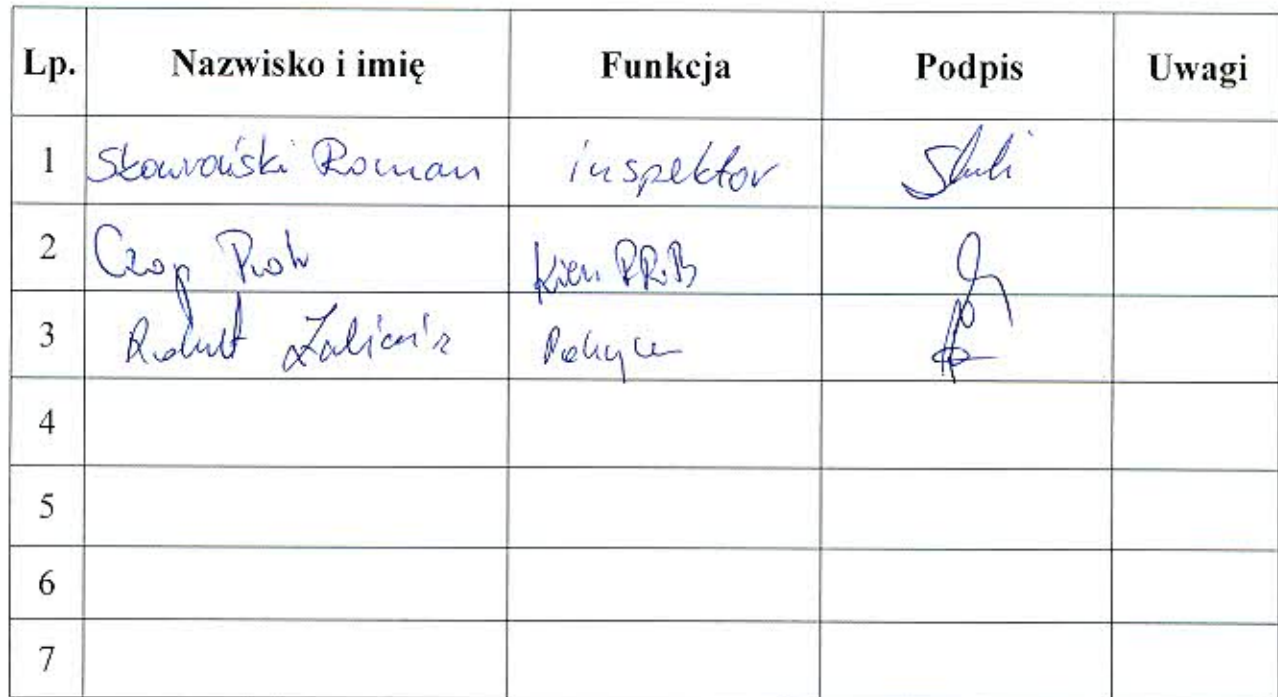 Lp. Nazwisko i imię Funkcja Podpis Uwagi
1 Skowroński Roman inspektor
2 Czop Piotr Kier. RRiB
3 Robert
4
5
6
7